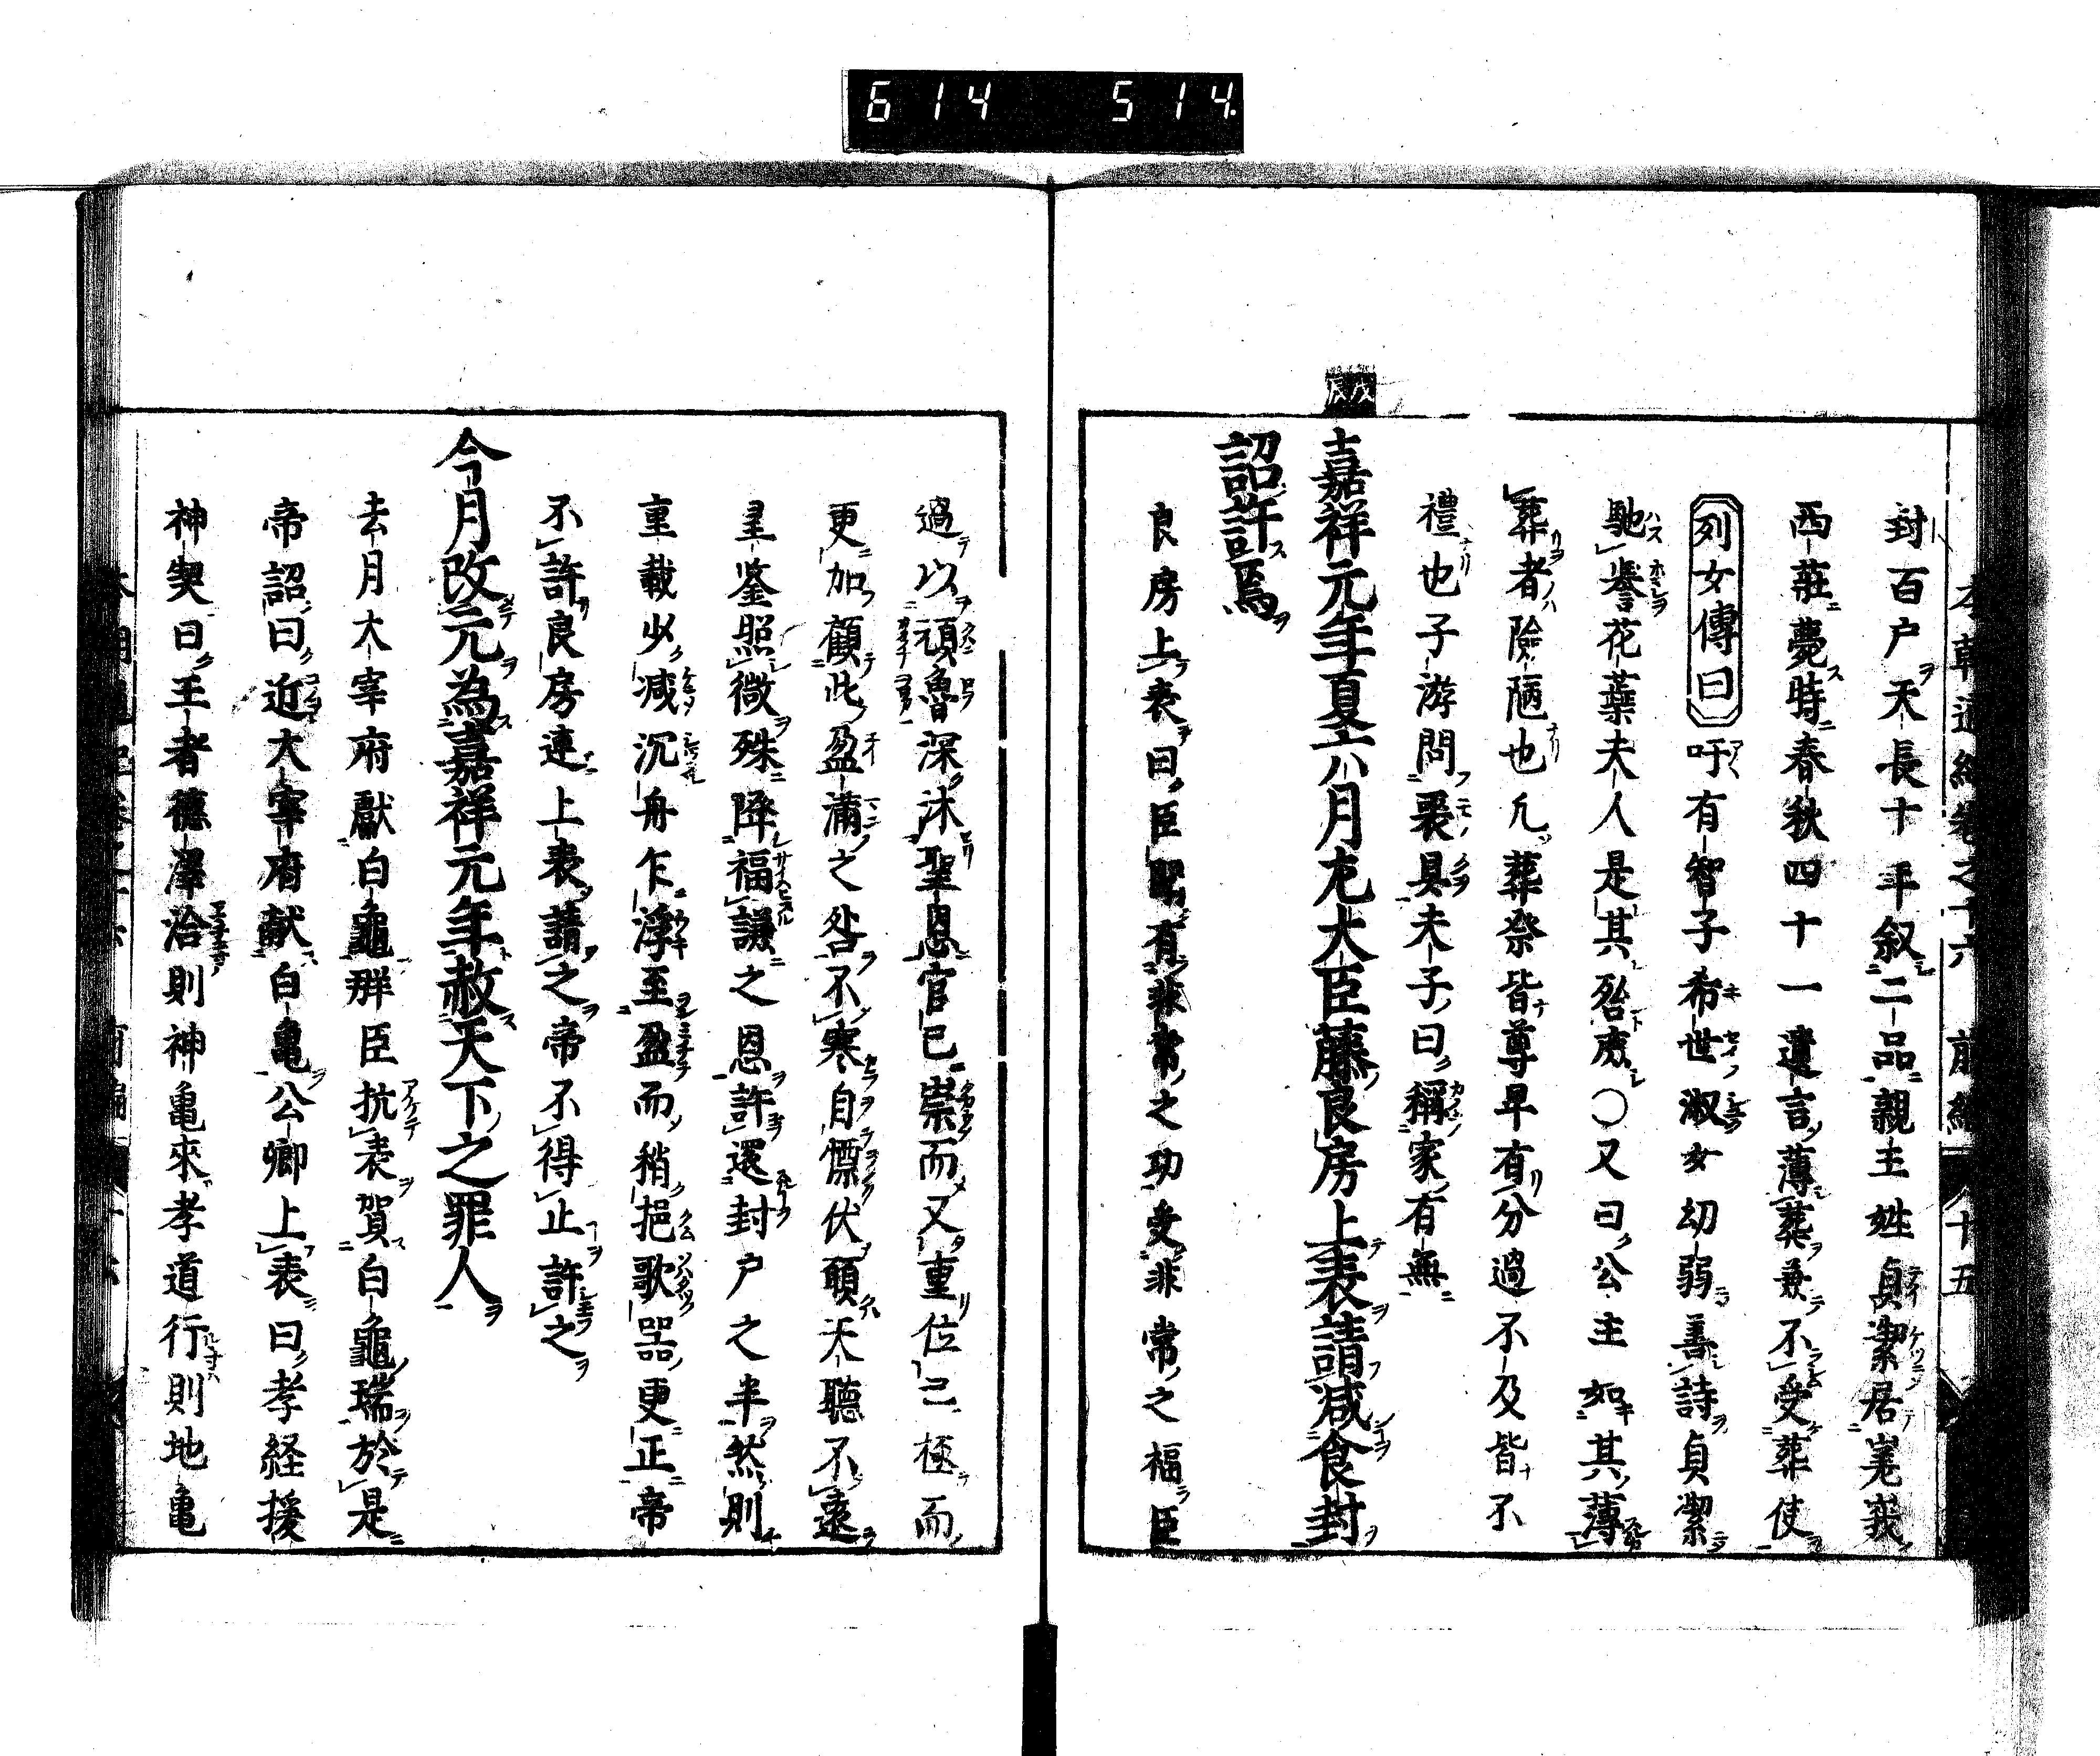 614 514
本朝通紀卷之十六 前編 十五
封百户天長十年叙二品親王姓貞潔居嵯峨
西莊薨時春秋四十一遺言薄葬兼不受葬使
列女傳曰吁有智子希世淑女幼弱善詩貞潔
馳譽花蘂夫人是其殆庶〇又曰公主如其薄
葬者險陋也凡葬祭皆尊卑有分過不及皆不
禮也子游問喪具夫子曰稱家有無
戊辰
嘉祥元年夏六月左大臣藤良房上表請减食封
詔許焉
良房上表曰臣聞有非常之功受非常之福臣
過以頑魯深沐聖恩官已崇而又重位已極而
更加顧此盈滿之咎不寒自慄伏願天聽不遠
皇鉴照微殊降福謙之恩許還封户之半然則
重載少减沉舟乍浮至盈而稍挹欹器更正帝
不許良房連上表請之帝不得止許之
今月改元為嘉祥元年赦天下之罪人
去月大宰府獻白龜群臣抗表賀白龜瑞於是
帝詔曰近大宰府献白亀公卿上表曰孝経援
神契曰王者德澤洽則神亀來孝道行則地亀